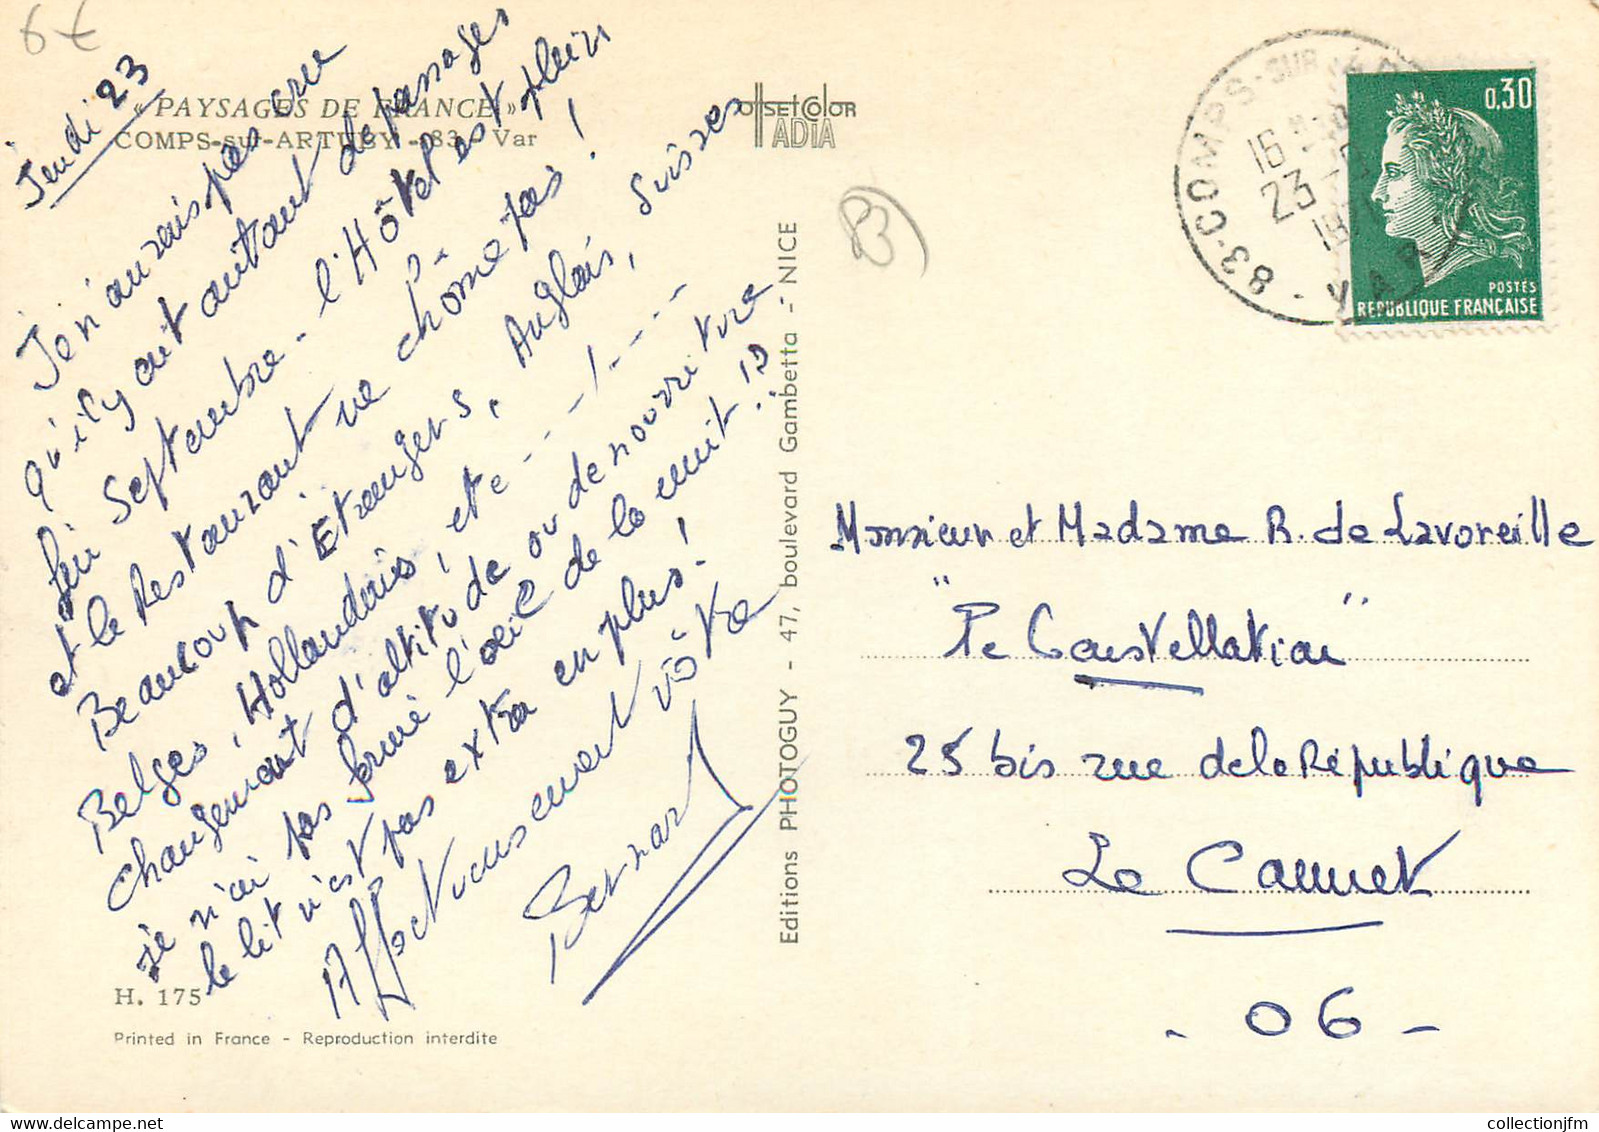 6€
Jeudi 23
« PAYSAGES DE FRANCE »
COMPS-sur-ARTUBY - 83 - Var
OffSETCOlOR
TADIA
Je n'aurais pas cru
qu'il y ait autant de passages
fin Septembre - l'Hôtel est plein
et le Restaurant ne chôme pas !
Beaucoup d'Etrangers, Anglais, Suisses
Belges, Hollandais, etc ---!----
Changement d'altitude ou de nourriture
je n'ai pas fermé l'oeil de la nuit !!
le lit n'est pas extra en plus !
Affectueusement vôtre
Bernard
H. 175
Printed in France - Reproduction interdite
Editions PHOTOGUY - 47, boulevard Gambetta - NICE
83
83-COMPS-SUR-
16 H
23-
19
VAR
0,30
POSTES
REPUBLIQUE FRANÇAISE
Monsieur et Madame R. de Lavoreille
"Le Constellation"
25 bis rue de la République
Le Cannet
- 06 -
collectionjfm